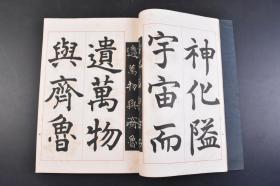 神化隘
宇宙而
遺萬物與齊魯
遺萬物
與齊魯